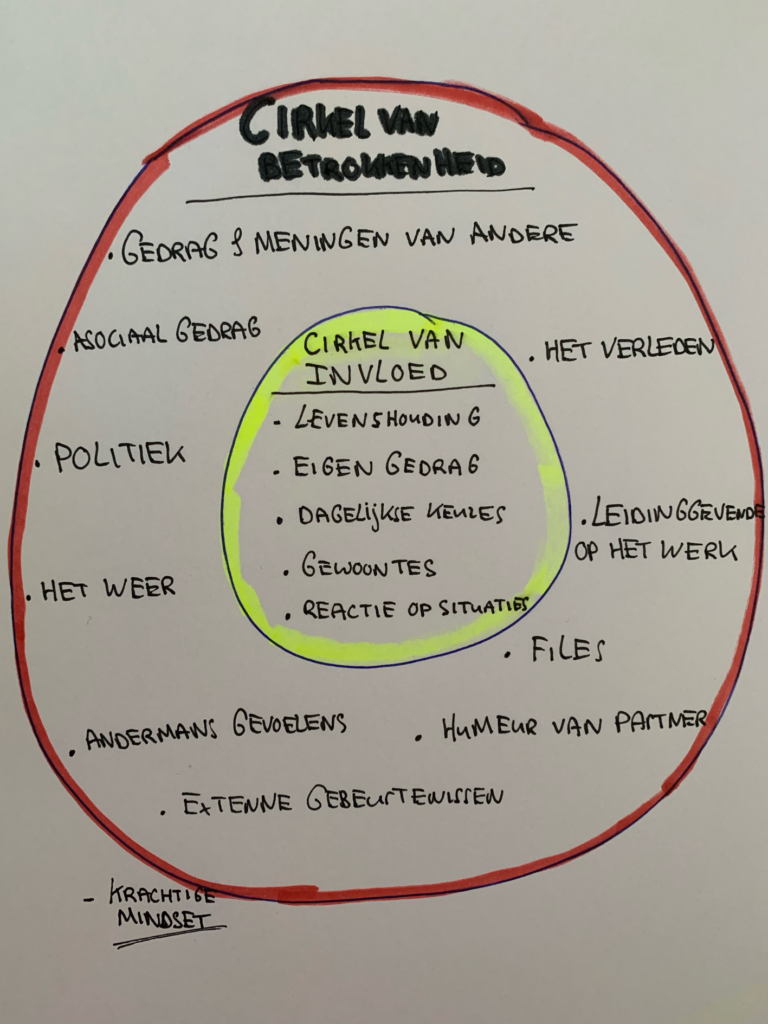 CIRKEL VAN
BETROKKENHEID
. GEDRAG & MENINGEN VAN ANDERE
. ASOCIAAL GEDRAG
CIRKEL VAN
INVLOED
. HET VERLEDEN
- LEVENSHOUDING
. POLITIEK
. EIGEN GEDRAG
. DAGELIJKSE KEUZES
. LEIDINGGEVENDE
OP HET WERK
. GEWOONTES
. HET WEER
. REACTIE OP SITUATIES
. FILES
. ANDERMANS GEVOELENS
. HUMEUR VAN PARTNER
. EXTERNE GEBEURTENISSEN
- KRACHTIGE
MINDSET